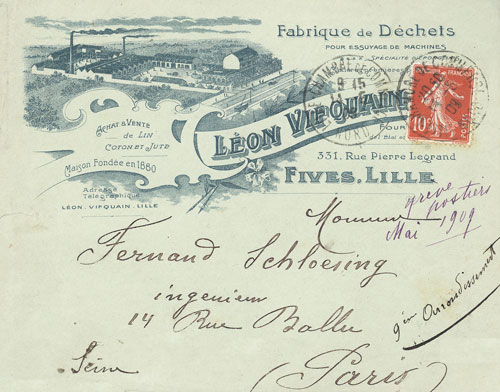 Fabrique de Déchets
POUR ESSUYAGE DE MACHINES
ACHAT & VENTE
DE LIN
COTON ET JUTE
Maison Fondée en 1880
Adresse
Télégraphique
LÉON VIFQUAIN. LILLE
LÉON VIFQUAIN
331, Rue Pierre Legrand
FIVES, LILLE
9 15
NORD
10
POSTES
Monsieur
grève
postiers
Mai 1909
Fernand Schloesing
ingenieur
14 Rue Ballu
9èm Arrondissement
Seine
(Paris)